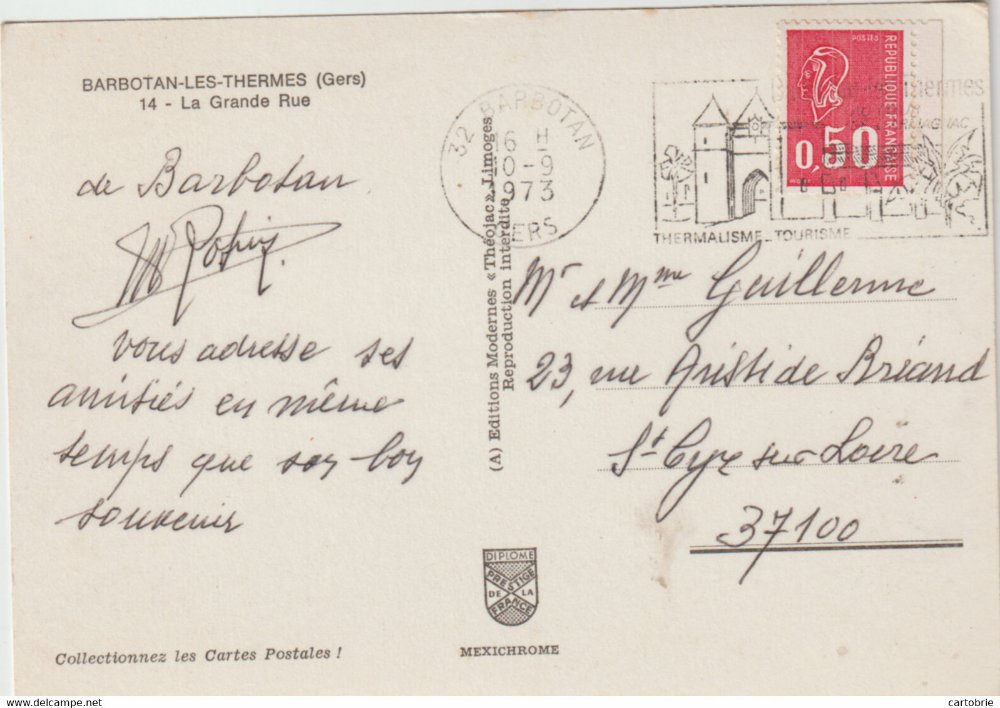 BARBOTAN-LES-THERMES (Gers)
14 - La Grande Rue
de Barbotan
vous adresse ses
amitiés en même
temps que son bon
souvenir
Collectionnez les Cartes Postales !
(A) Editions Modernes « Théojac », Limoges
Reproduction interdite
DIPLOME
PRESTIGE
DE LA
FRANCE
MEXICHROME
32 BARBOTAN
16 H
10-9
1973
GERS
THERMALISME - TOURISME
POSTES
REPUBLIQUE FRANÇAISE
0,50
Mr et Mme Guillerme
23, rue Aristide Bréand
St Cyr sur Loire
37100
delcampe.net
cartobrie